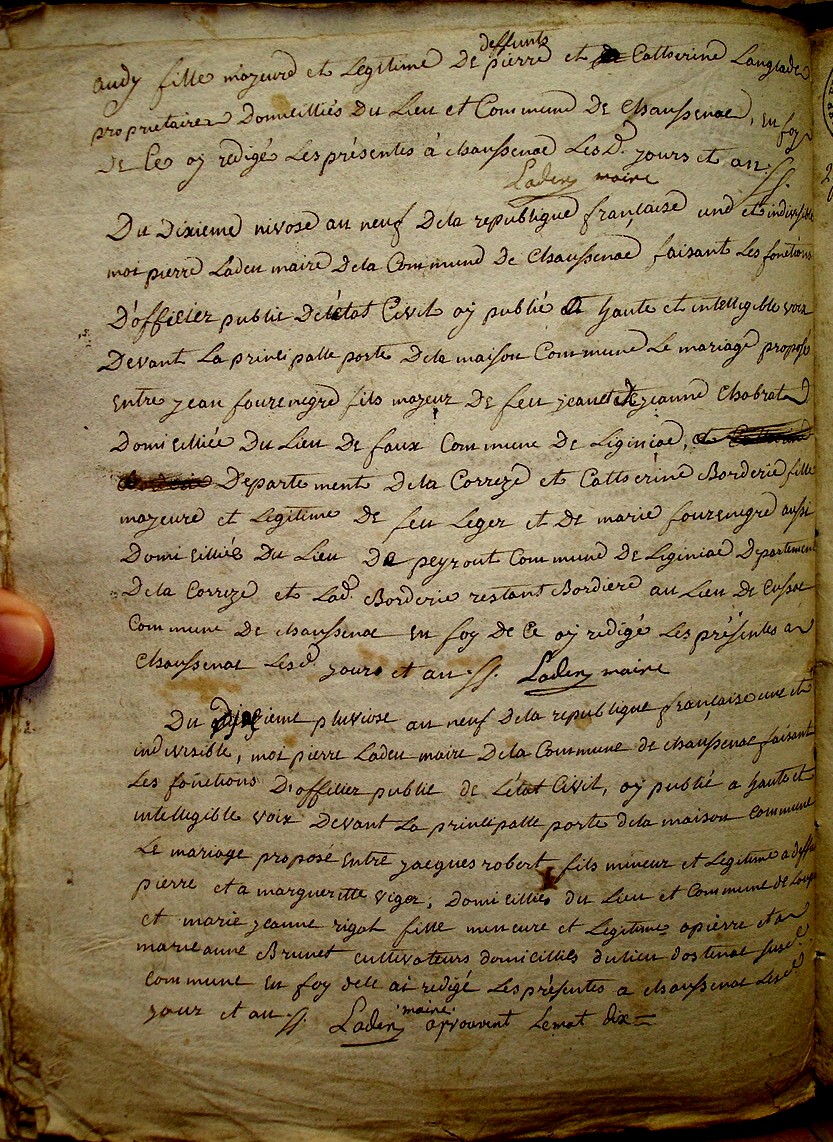 audy fille majeure et Legitime De deffunts pierre et Catherine Langlade
proprietaires Domicilliés Du Lieu et Commune De Chaussenac, en foy
De Ce oy redigé Les présentes á chaussenac Lesd. jours et an
Laden maire
Du Dixieme nivose an neuf Dela republique française une et indivisible
moi pierre Laden maire Dela Commune De Chaussenac faisant Les fonctions
D'officier public De létat Civil oy publié a haute et intelligible voix
Devant La principalle porte Dela maison Commune Le mariage proposé
Entre jean fourenegre fils majeur De feu jean et de jeanne Chabrat
Domicilliée Du Lieu De faux Commune De Liginiac, et
Departement Dela Correze et Catherine Borderie fille
majeure et Legitime De feu Leger et De marie fourenegre aussi
Domicilliés Du Lieu De peyrout Commune De Liginiac Departement
Dela Correze et Lad. Borderie restant Bordiere au Lieu De Cussac
Commune De chaussenac En foy De Ce oy redigé Les présentes á
Chaussenac Lesd. jours et an Laden maire
Du Dixieme pluviose an neuf Dela republique française une et
indivisible, moi pierre Laden maire Dela Commune de chaussenac faisant
Les fonctions D'officier public de Létat Civil, oy publié a haute et
intelligible voix Devant La principalle porte dela maison commune
Le mariage proposé Entre jacques robert fils mineur et Legitime a deffu
pierre et a margueritte viger, Domicilliés du Lieu et Commune de
et marie jeanne rigal fille mineure et Legitime a pierre et a
marie anne Brunet cultivateurs domicilliés du lieu dostenac susd.
Commune En foy dece ai redigé Les présentes a chaussenac Lesd.
jour et an Laden maire aprouvent Lemot dix